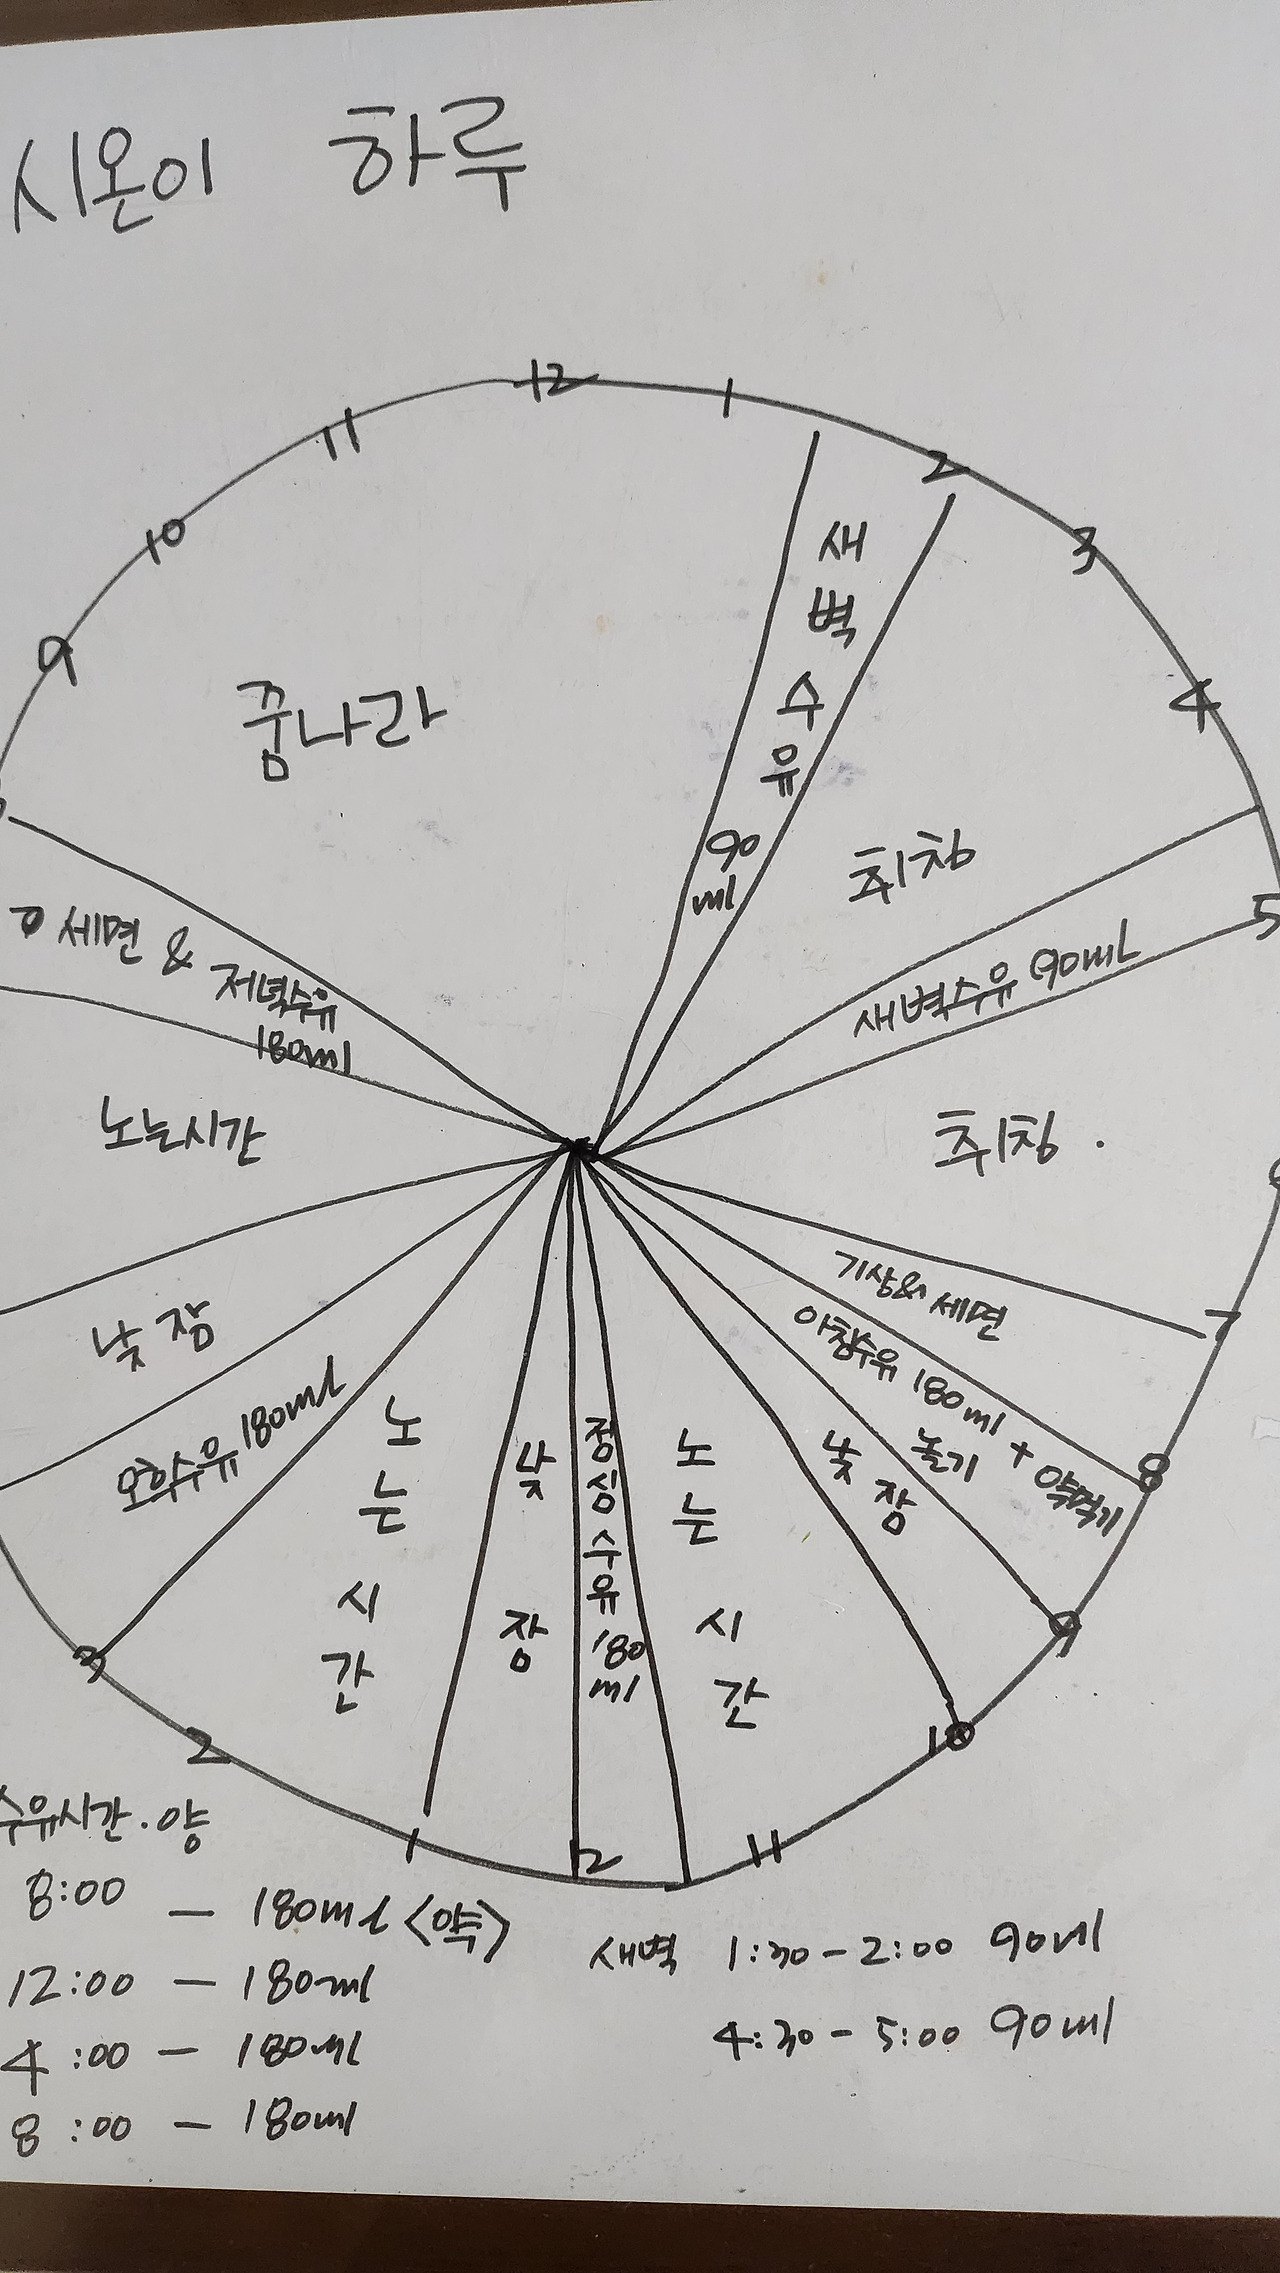 시온이 하루
12
1
2
3
4
5
7
8
9
10
11
12
1
2
3
9
10
11
꿈나라
새벽수유
90
ml
취침
새벽수유 90ml
취침
기상& 세면
아침수유 180ml + 약먹기
놀기
낮잠
노는시간
점심수유180
ml
낮잠
노는시간
오후수유 180ml
낮잠
노는시간
세면 & 저녁수유
180ml
수유시간.양
8:00 - 180ml <약>
12:00 - 180ml
4:00 - 180ml
8:00 - 180ml
새벽 1:30-2:00 90ml
4:30-5:00 90ml